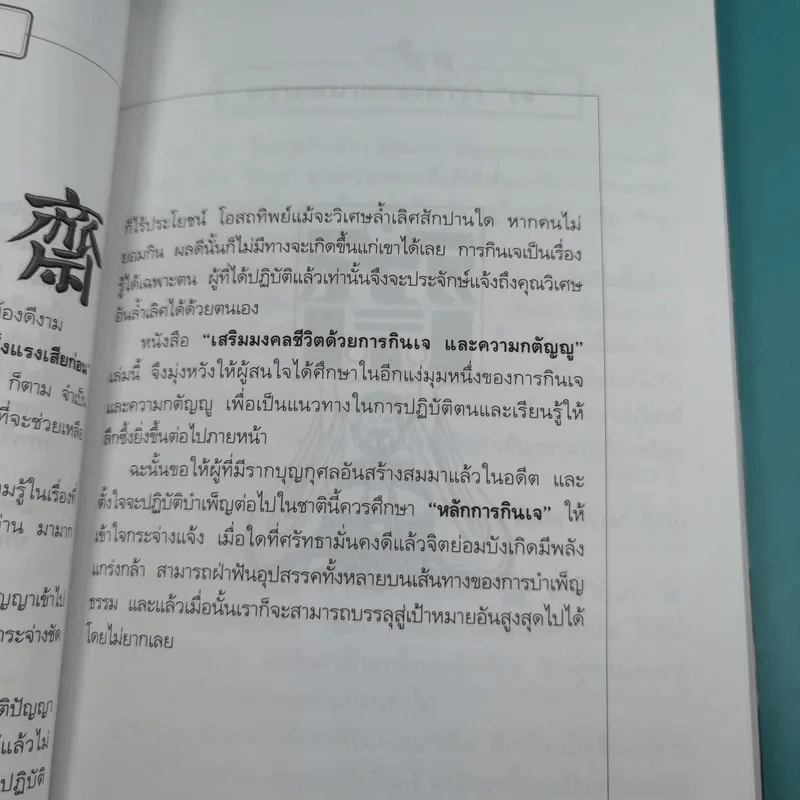 齋
้องดีงาม
แรงเสียก่อน
ก็ตาม จำเป็น
ที่จะช่วยเหลือ
มรู้ในเรื่องที่
่าน มามาก
ญญาเข้าไป
กระจ่างชัด
ติปัญญา
แล้วไม่
ปฏิบัติ
ก็ไร้ประโยชน์ โอสถทิพย์แม้จะวิเศษล้ำเลิศสักปานใด หากคนไม่
ยอมกิน ผลดีนั้นก็ไม่มีทางจะเกิดขึ้นแก่เขาได้เลย การกินเจเป็นเรื่อง
รู้ได้เฉพาะตน ผู้ที่ได้ปฏิบัติแล้วเท่านั้นจึงจะประจักษ์แจ้งถึงคุณวิเศษ
อันล้ำเลิศได้ด้วยตนเอง
หนังสือ “เสริมมงคลชีวิตด้วยการกินเจ และความกตัญญู”
เล่มนี้ จึงมุ่งหวังให้ผู้สนใจได้ศึกษาในอีกแง่มุมหนึ่งของการกินเจ
และความกตัญญู เพื่อเป็นแนวทางในการปฏิบัติตนและเรียนรู้ให้
ลึกซึ้งยิ่งขึ้นต่อไปภายหน้า
ฉะนั้นขอให้ผู้ที่มีรากบุญกุศลอันสร้างสมมาแล้วในอดีต และ
ตั้งใจจะปฏิบัติบำเพ็ญต่อไปในชาตินี้ควรศึกษา “หลักการกินเจ” ให้
เข้าใจกระจ่างแจ้ง เมื่อใดที่ศรัทธามั่นคงดีแล้วจิตย่อมบังเกิดมีพลัง
แกร่งกล้า สามารถฝ่าฟันอุปสรรคทั้งหลายบนเส้นทางของการบำเพ็ญ
ธรรม และแล้วเมื่อนั้นเราก็จะสามารถบรรลุสู่เป้าหมายอันสูงสุดไปได้
โดยไม่ยากเลย